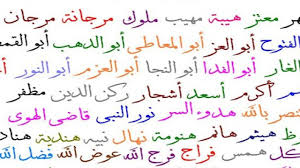 هر معتز هيبة مهيب ملوك مرجانة مرجان
الفتوح أبو العز أبو المعاطي أبو الدهب أبو القمـ
أبو الفدا أبو النجا أبو العزم أبو النور أبو
أكرم أسعد أشجار ركن الدين مظفر
نصر بالله هدوء السر نور النبي قاضي الهوى
ظ هيثم هانم هنومة نهال نبيه هندية هناد
كل همس فراج فرج الله عوض الله فضل الله